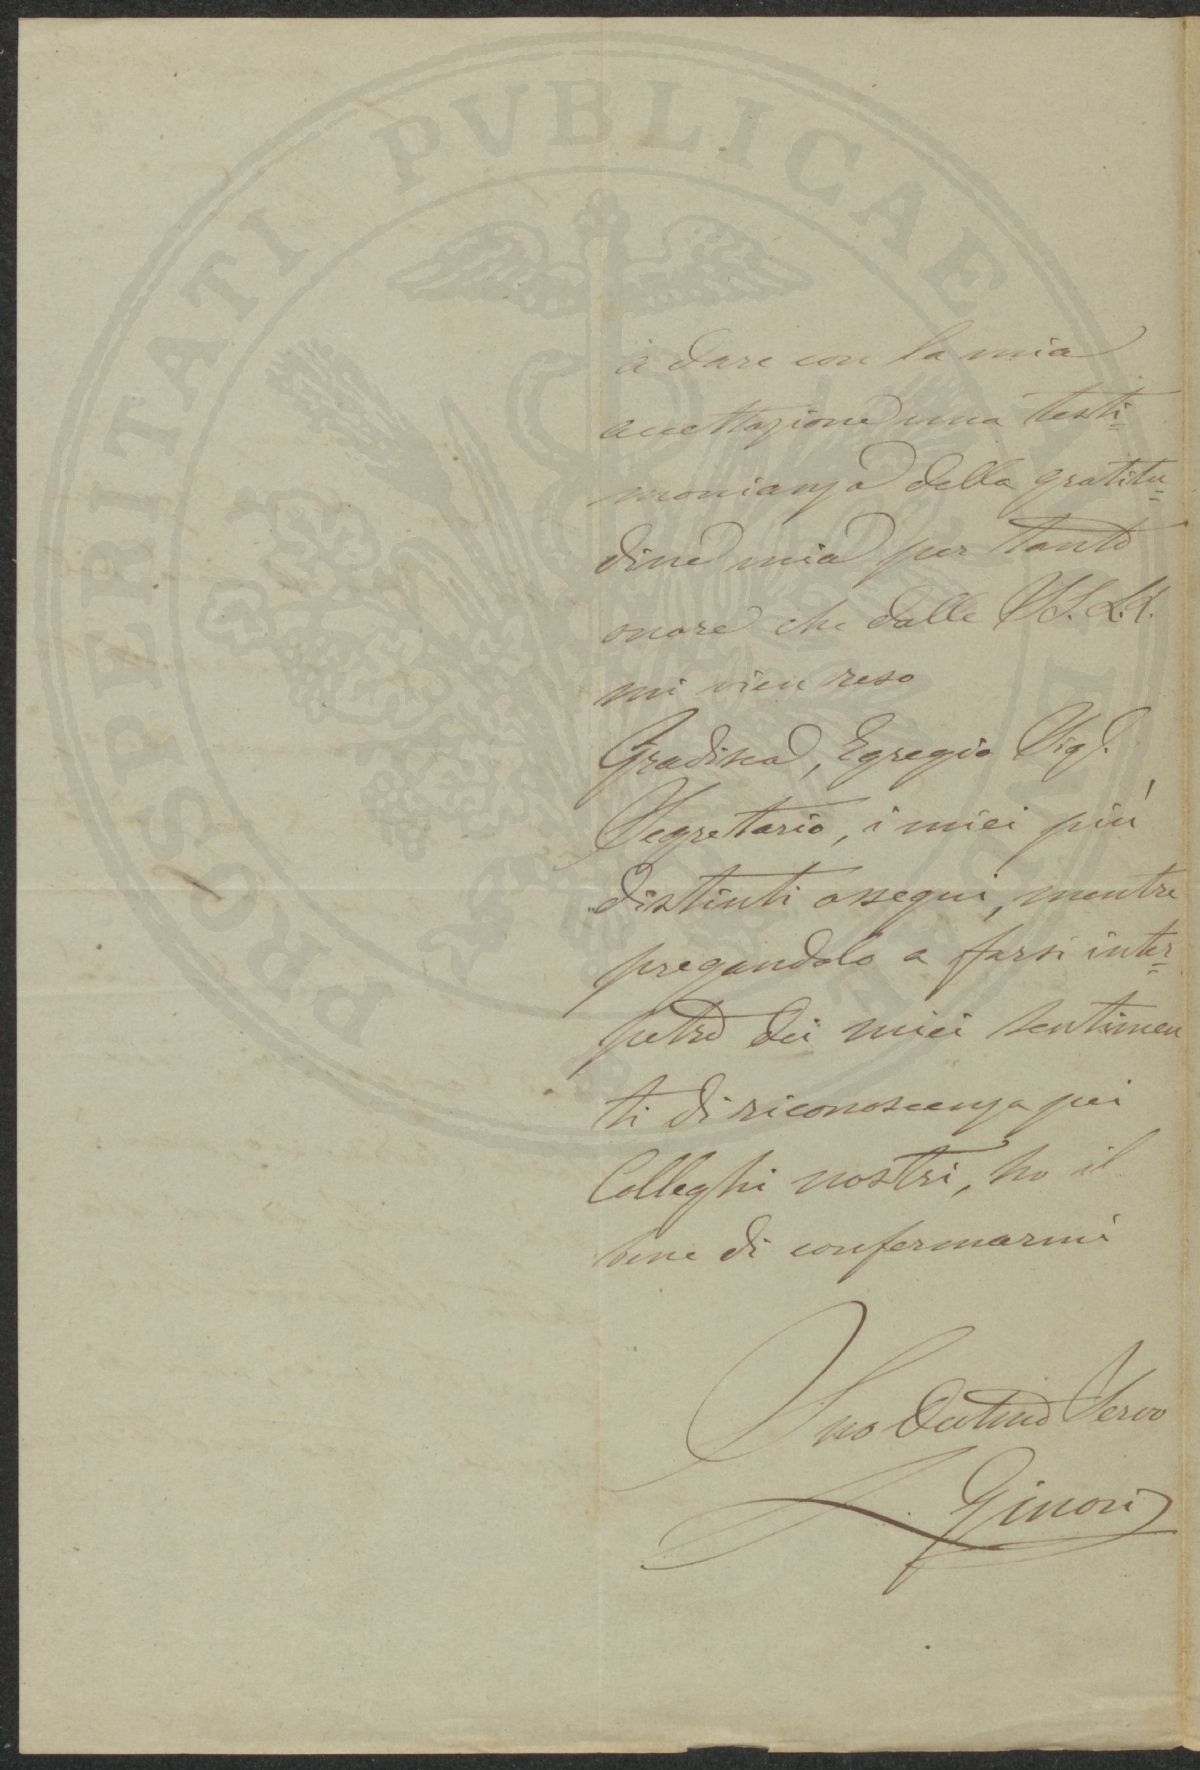 PROSPERITATI PVBLICAE
a dare con la mia
accettazione una testi=
monianza della gratitu=
dine mia per tanto
onore che dalle SS. LL.
mi vien reso
Gradisca, Egregio Sigr.
Segretario, i miei più
distinti ossequi, mentre
pregandolo a farsi inter=
petre dei miei sentimen
ti di riconoscenza pei
Colleghi nostri, ho il
bene di confermarmi
Suo Servo
L. Ginori